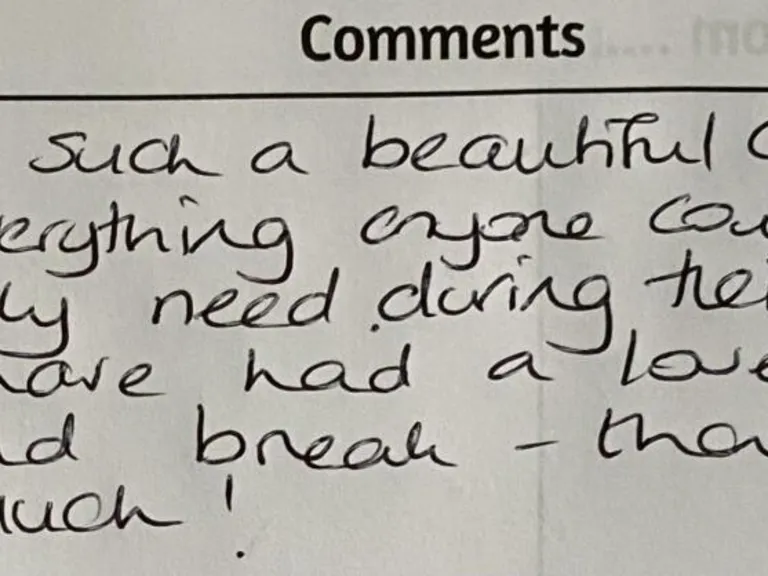 Comments
such a beautiful c
erything anyone cou
ly need during thei
have had a love
nd break - tha
much!